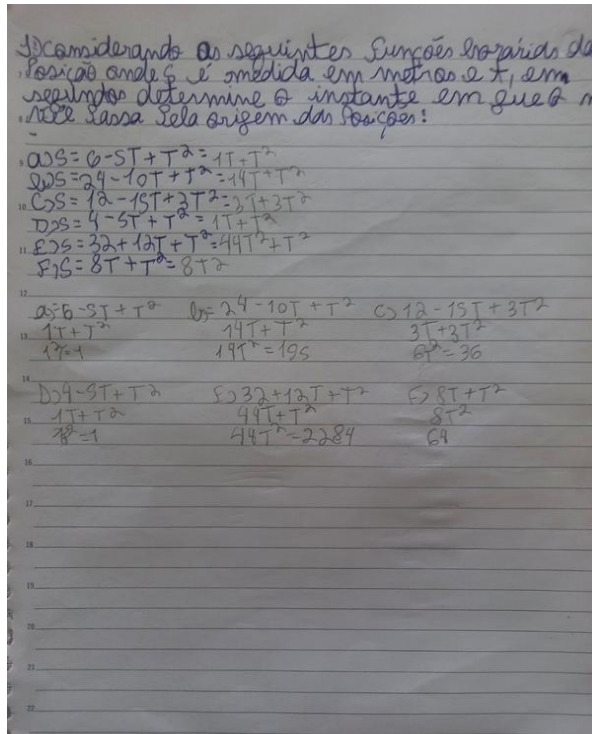 1) considerando as seguintes funções horárias da
Posição onde S é medida em metros e t, em
segundos determine o instante em que o m
óvel Passa Pela origem das Posições:
a) S = 6 - 5T + T² = 1T + T²
b) S = 24 - 10T + T² = 14T + T²
10 C) S = 12 - 15T + 3T² = 3T + 3T²
D) S = 4 - 5T + T² = 1T + T²
11 E) S = 32 + 12T + T² = 44T² + T²
F) S = 8T + T² = 8T2
12
a) = 6 - 5T + T² b) = 24 - 10T + T² C) 12 - 15T + 3T²
13 1T + T² 14T + T² 3T + 3T²
1² = 1 14T² = 195 6T² = 36
14
D) 4 - 5T + T² E) 32 + 12T + T² F) 8T + T²
15 1T + T² 44T + T² 8T²
1² = 1 44T² = 2284 64
16
17
18
19
20
21
22